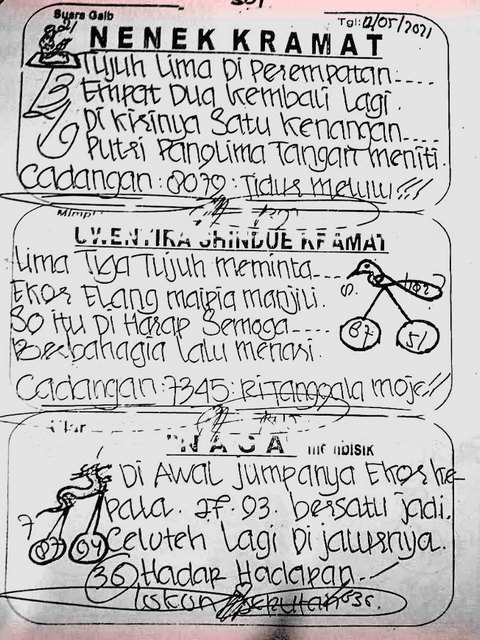 Suara Gaib
Tgl: 12/05/2021
NENEK KRAMAT
Tujuh Lima Di perempatan----
Empat Dua Kembali Lagi.
Di Kirinya Satu Kenangan----
Putri Panglima Tangan meniti.
Cadangan: 8079: Tidur melulu!!!
Mimpi
KRAMAT
Lima Tiga Tujuh meminta---
Ekor Elang mairia manjili.
So itu Di Harap Semoga----
Berbahagia Lalu menari.
87 51
Cadangan: 7345: Ri Tanggala moje!!
NAGA
Di Awal Jumpanya Ekor Ke-
pala. 27. 93. bersatu jadi.
Celoteh Lagi Di jalurnya.
7
87 94
36 Hadap Hadapan---